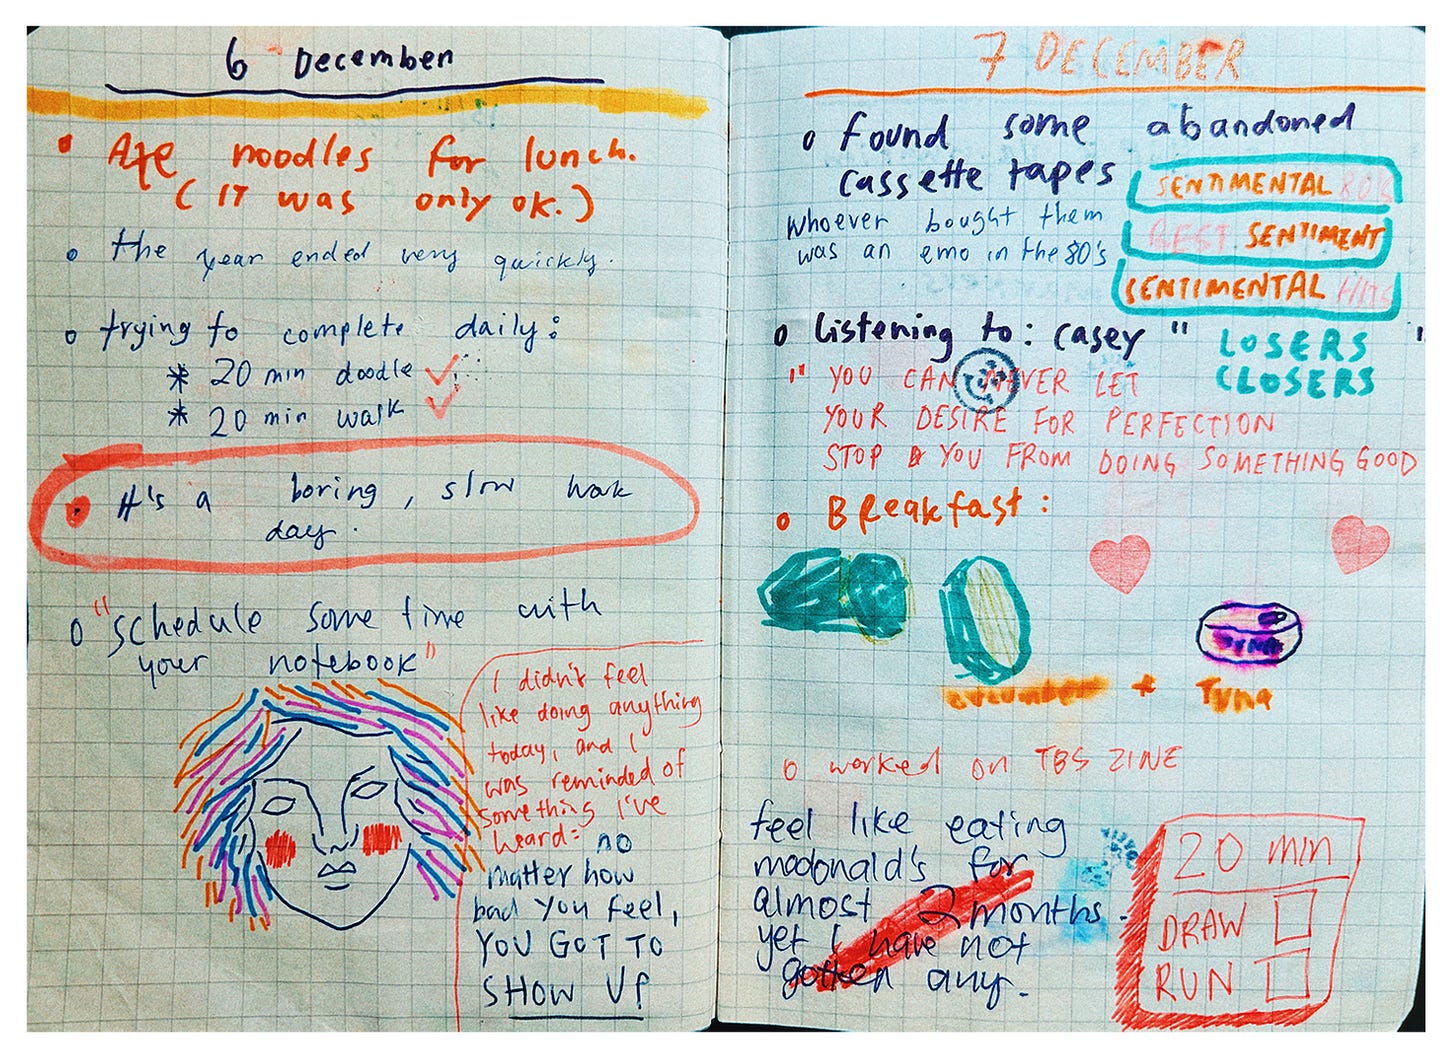 6 December
• Ate noodles for lunch.
(IT was only ok.)
• the year ended very quickly.
o trying to complete daily:
* 20 min doodle ✓
* 20 min walk ✓
• It's a boring, slow work
day.
o "schedule some time with
your notebook"
I didn't feel
like doing anything
today, and I
was reminded of
something I've
heard: no
matter how
bad you feel,
YOU GOT TO
SHOW UP
7 DECEMBER
o found some abandoned
cassette tapes
SENTIMENTAL 80's
BEST SENTIMENT
SENTIMENTAL HITS
whoever bought them
was an emo in the 80's
o listening to: casey " LOSERS "
CLOSERS
" YOU CAN NEVER LET
YOUR DESIRE FOR PERFECTION
STOP YOU FROM DOING SOMETHING GOOD
o Breakfast:
TUNA
cucumber + Tuna
o worked on TBS ZINE
feel like eating
mcdonald's for
almost 2 months.
yet I have not
gotten any.
20 min
DRAW
RUN